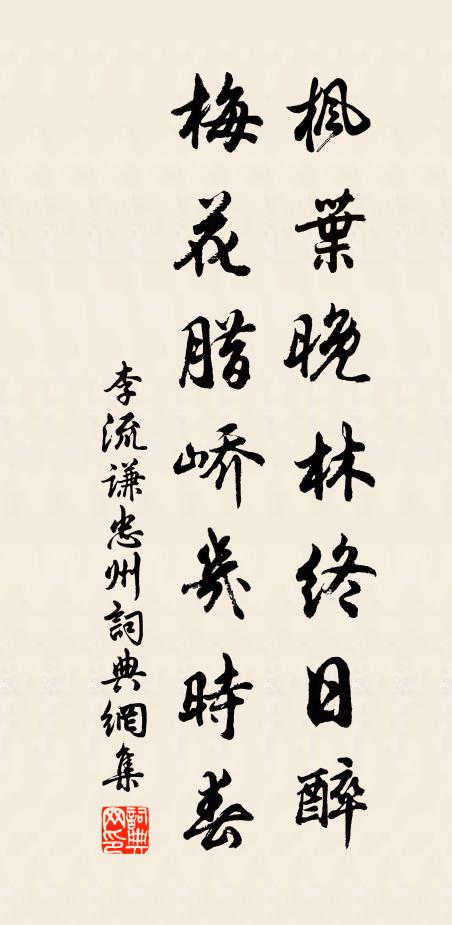 楓葉晚林終日醉
梅花腊嶠幾時春
李流謙忠州詞典網集
詞典網印